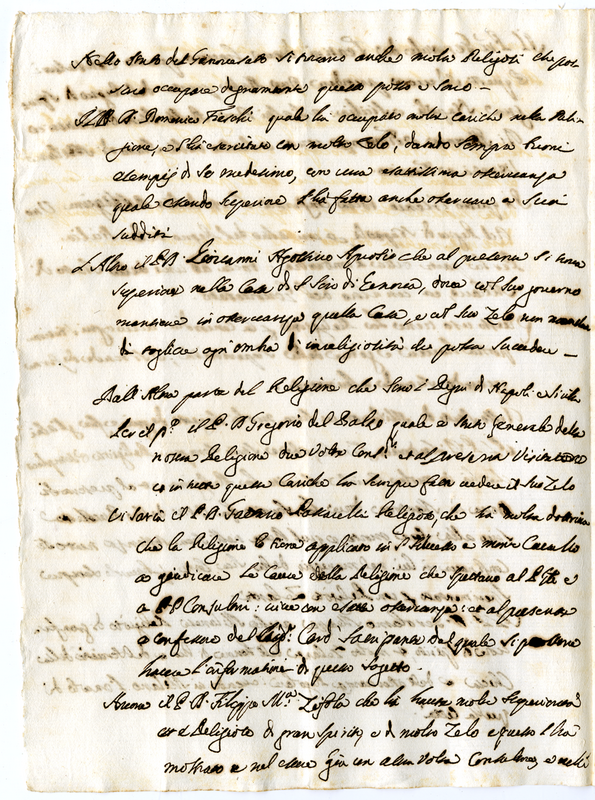 Nello Stato del Genovesato si trovano anche molti Religiosi che pos
sono occupare degnamente questo posto e sono
Il P. D. Domenico Fieschi quale hà occupato molte cariche nella Reli-
gione, e l'hà esercitate con molto zelo, dando sempre buoni
esempij di se medesimo, con una esattissima osservanza
quale essendo Superiore l'hà fatta anche osservare a suoi
sudditi
L'Altro il P. D. Giovanni Agostino che al presente si trova
Superiore nella Casa di S. Siro di Genova, dove col suo governo
mantiene in osservanza quella Casa, e col suo zelo non
di togliere ogni ombra di irreligiosità che potria succedere
Dall'Altra parte del Religione che sono i Regni di Napoli e Sicilia
Per il p.º il P. D. Gregorio del quale è stato Generale della
nostra Religione due volte Cons.e et al presente Visitatore
et in tutte queste Cariche hà sempre fatto vedere il suo Zelo
Vi saria il P. D. Gaetano Religioso, che hà molta dottrina
che la Religione lo tiene applicato in S. Silvestro a monte Cavallo
a giudicare le Cause della Religione che spettano al P. e
a PP. Consultori: vive con esatta osservanza: et al presente
è confessore del Sig.r Card. Sampieri dal quale si potrà
havere l'informatione di questo sogetto.
Avere il P. D. Filippo M.a che hà havute molte Superiorità
et è Religioso di gran spirito, e di molto zelo e questo l'hà
mostrato e nel che già con altra volta Consultore, e nelli